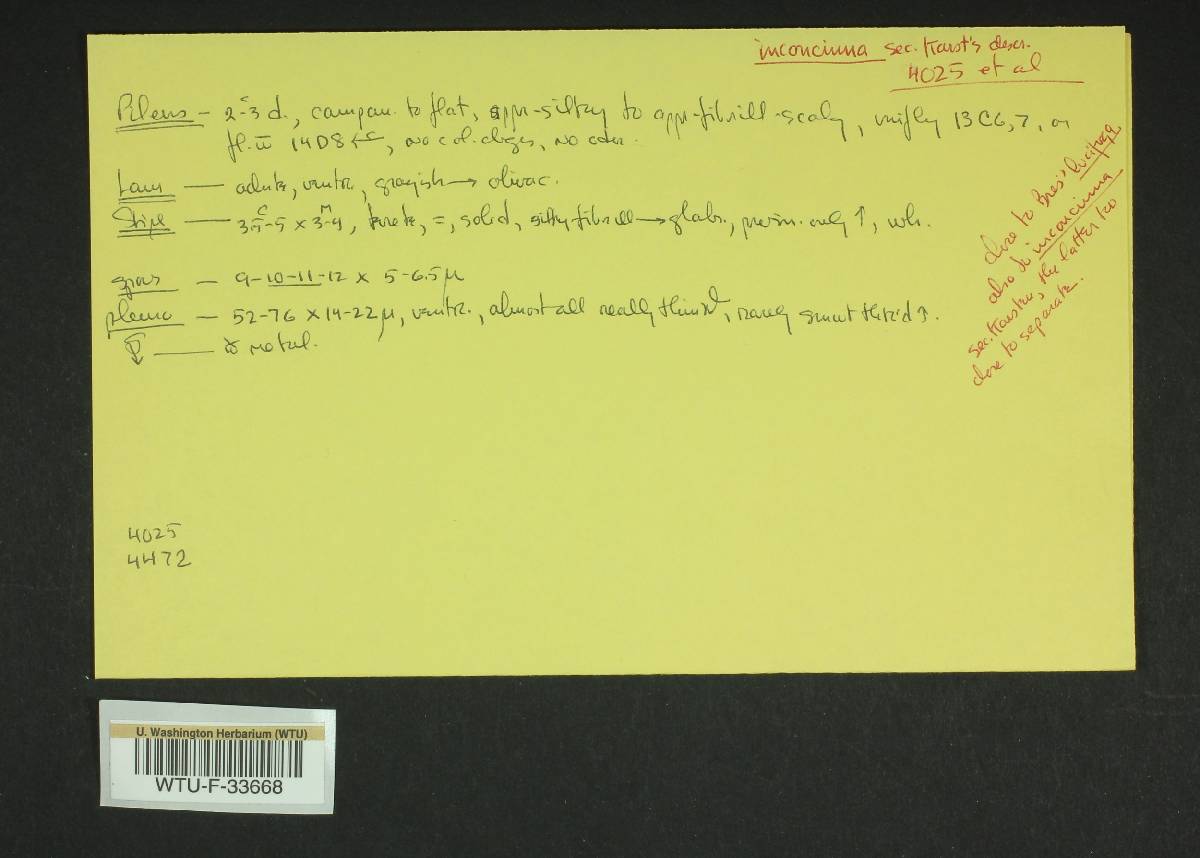 inconcinna sec. Karst's descr.
4025 et al
Pileus – 2-3 d., campan. to flat, appr-silky to appr-fibrill-scaly, unifly 13 C6, 7, or
14D8, no col. chges, no odor.
Lam — adnate, ventr., grayish → olivac.
Stipe — 3.5-5 x 3-4, terete, =, solid, silky-fibrill → glabr., pruin. only ↑, wh.
spores – 9-10-11-12 x 5-6.5 µ
pleuro – 52-76 x 14-22 µ, ventr., almost all really thin, rarely ↑.
close to Bres' lucifuga
also to inconcinna
sec. Karsten, the latter too
close to separate.
4025
4472
U. Washington Herbarium (WTU)
WTU-F-33668